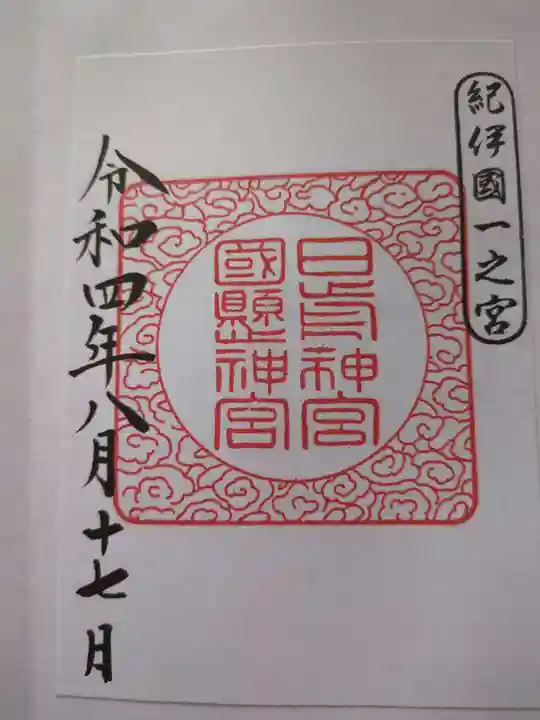 紀伊國一之宮
日前神宮
國懸神宮
令和四年八月十七日